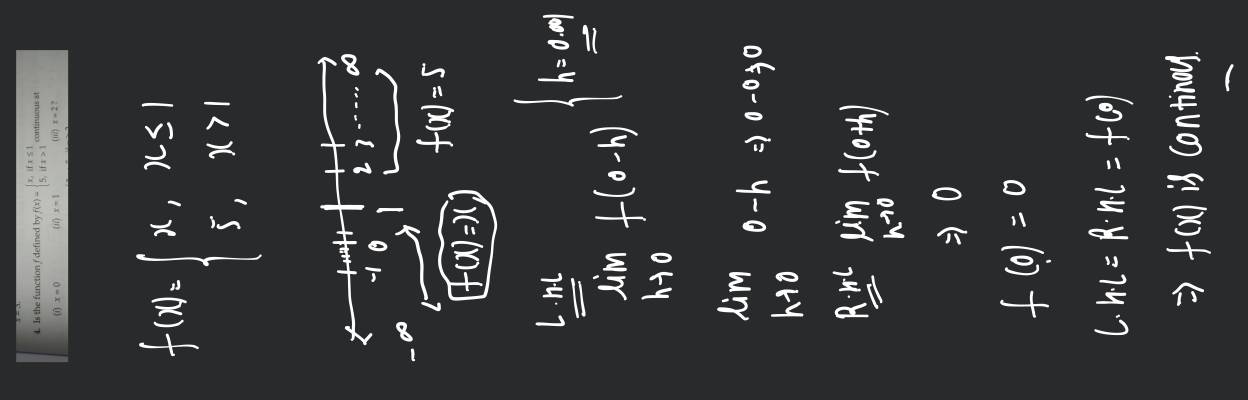 4. Is the function f defined by f(x) = { x, if x ≤ 1
5, if x > 1 continuous at
(i) x = 0 (ii) x = 1 (iii) x = 2 ?
f(x) = { x , x ≤ 1
5 , x > 1
-∞ -1 0 1 2 3 ...... ∞
f(x)=x f(x) = 5
L.H.L
lim f(0-h) { h = 0.001
h→0
lim 0-h ⇒ 0-0⇒0
h→0
R.H.L lim f(0+h)
h→0
⇒ 0
f(0) = 0
L.H.L = R.H.L = f(0)
⇒ f(x) is continous.